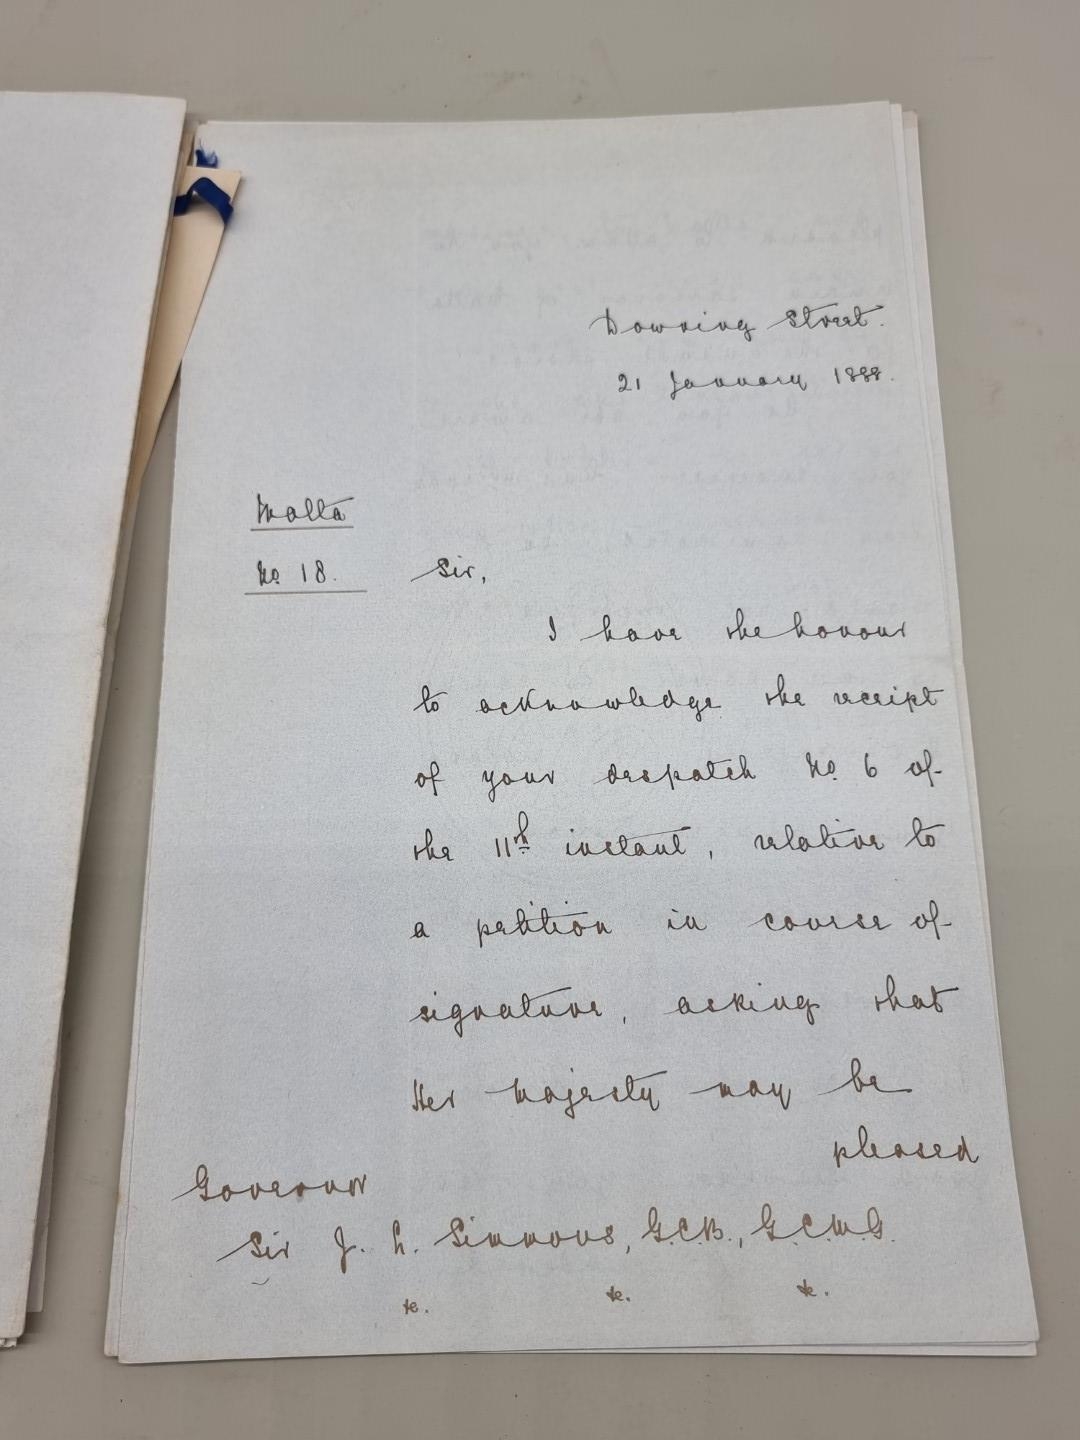 Downing Street.
21 January 1888.
Malta
No. 18.
Sir,
I have the honour
to acknowledge the receipt
of your despatch No. 6 of
the 11th instant, relative to
a petition in course of
signature, asking that
Her Majesty may be
pleased
Governor
Sir J. L. Simmons, G.C.B., G.C.M.G.
&c. &c. &c.